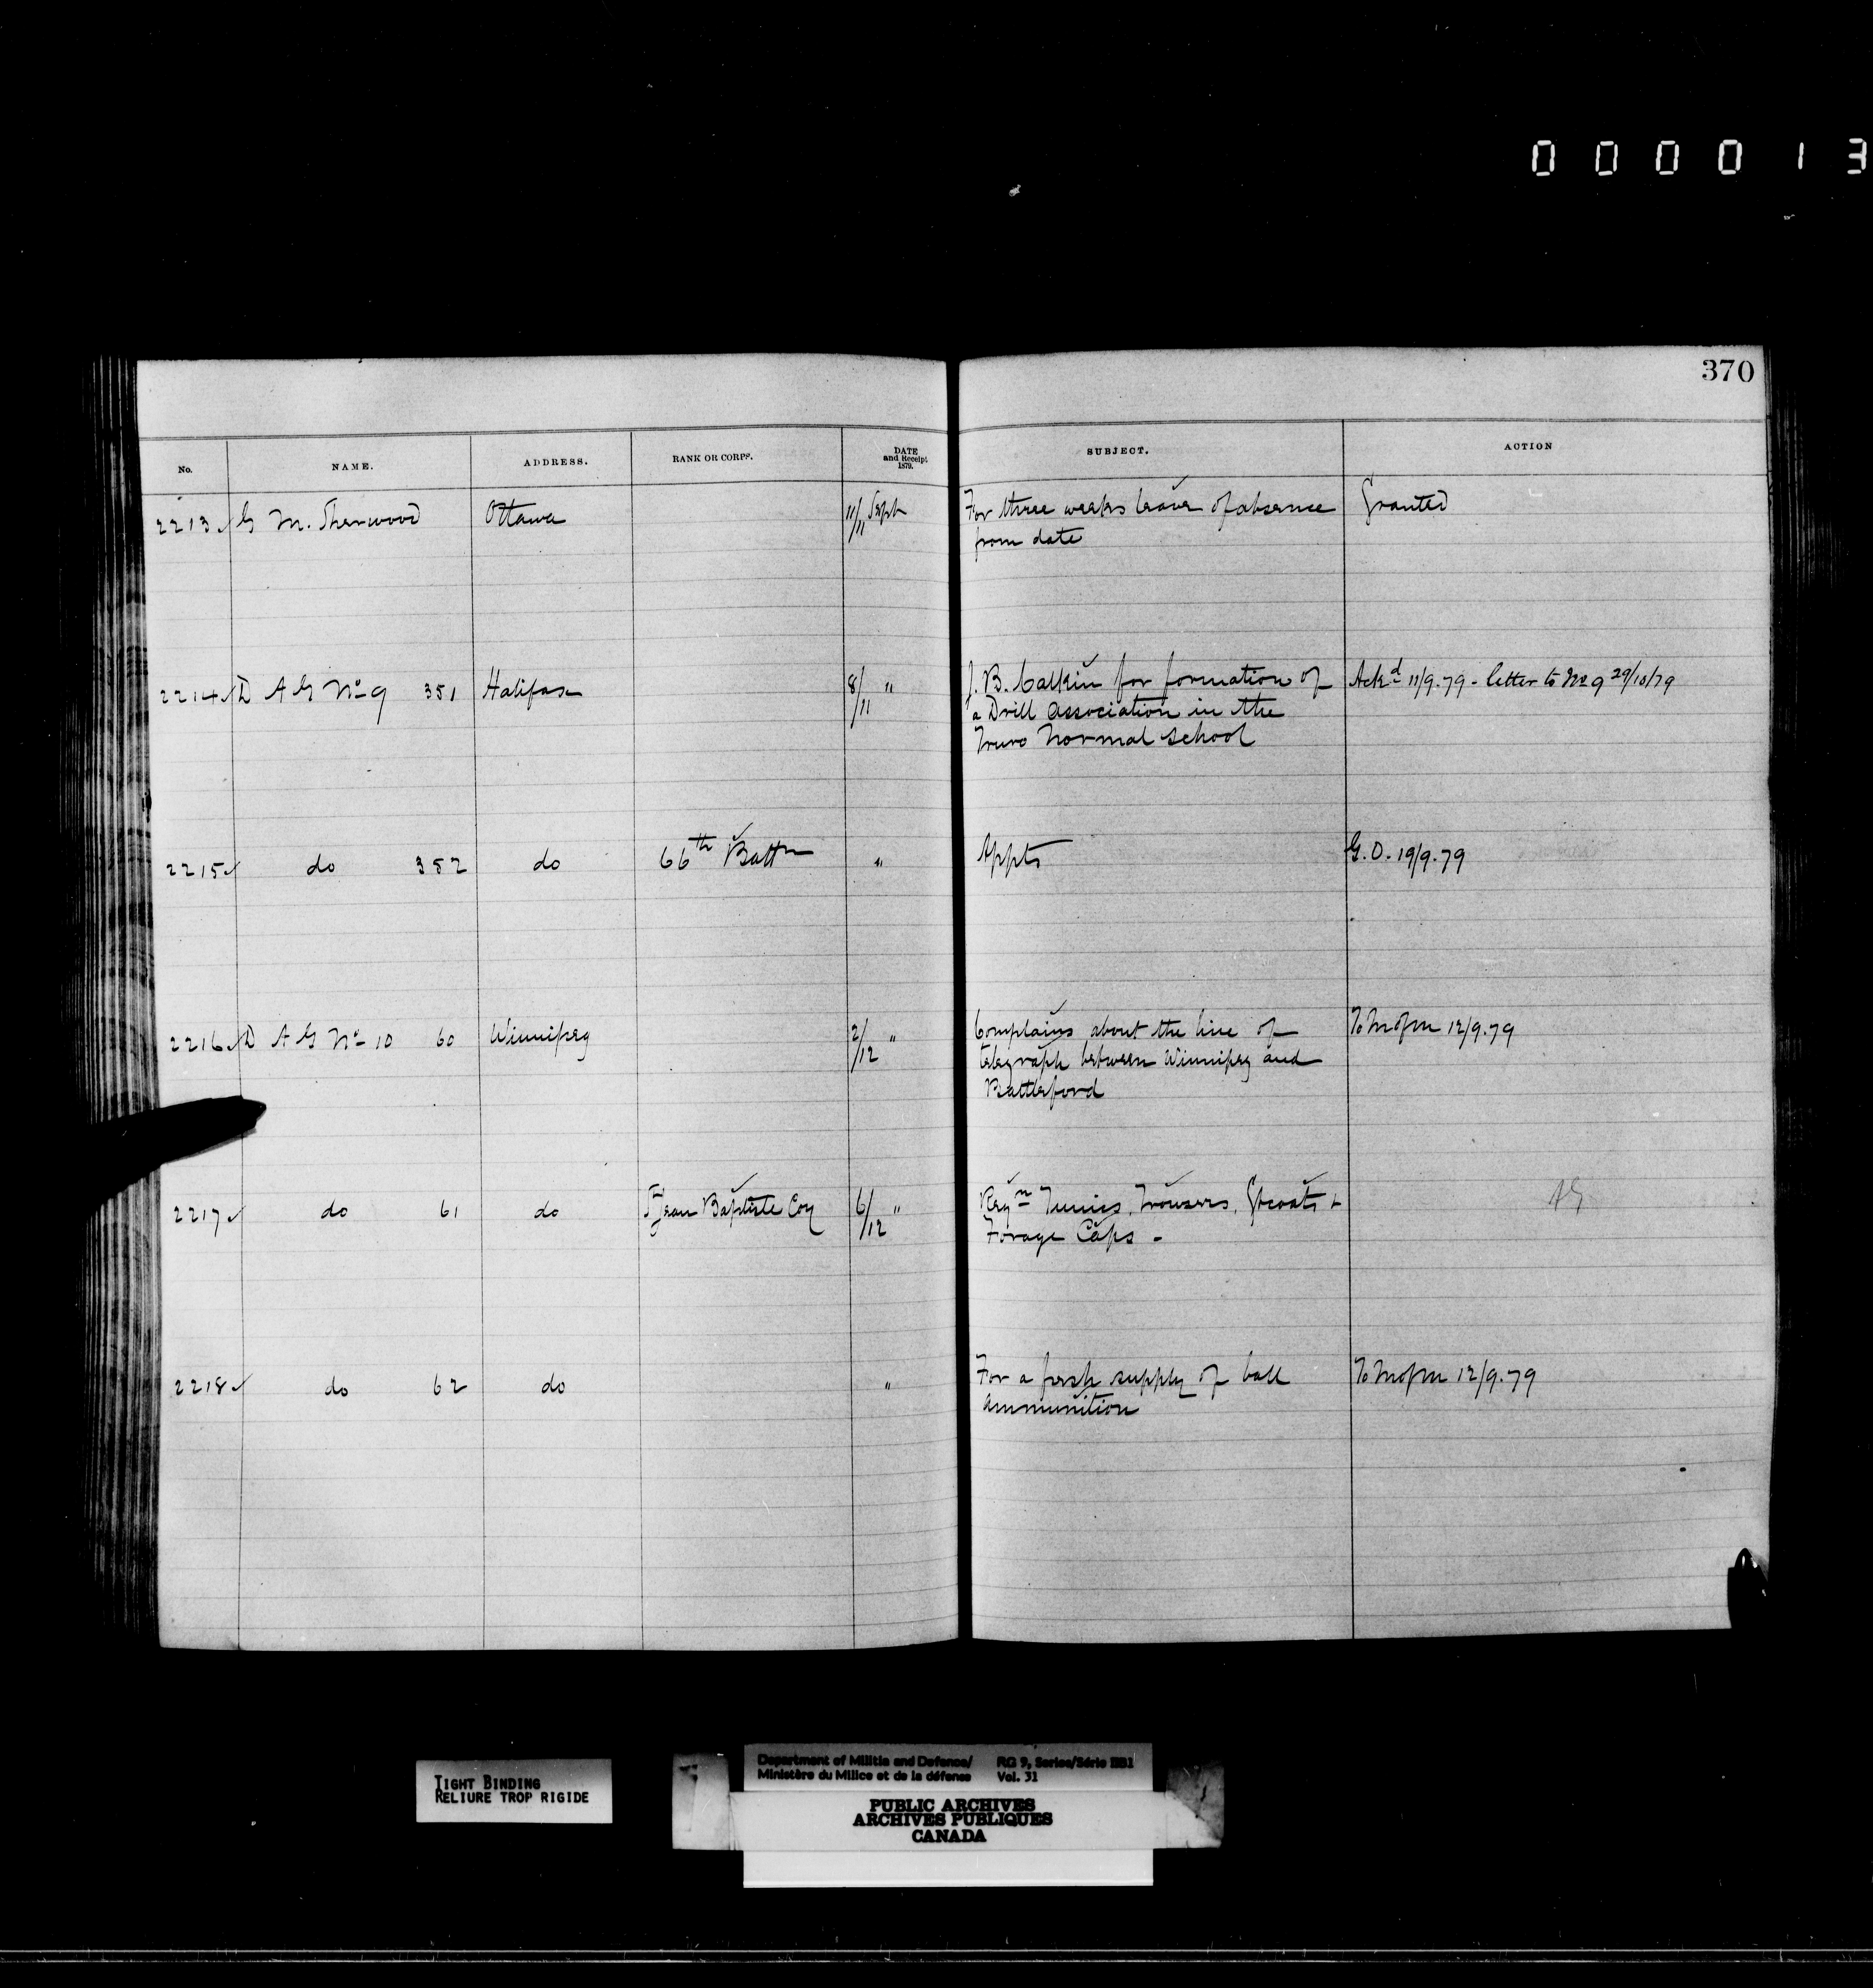 000013
370
No. NAME. ADDRESS. RANK OR CORPS. DATE and Receipt 1879. SUBJECT. ACTION
2213 G M. Sherwood Ottawa 11/11 Sept For three weeks leave of absence Granted
from date
2214 D A G No 9 351 Halifax 8/11 " J. B. Calkin for formation of Ackd 11/9.79 - letter to No 9 29/10/79
a Drill Association in the
Truro Normal School
2215 do 352 do 66th Battn " Appts G.O. 19/9.79
2216 D A G No 10 60 Winnipeg 2/12 " Complains about the line of To M of M 12/9.79
telegraph between Winnipeg and
Battleford
2217 do 61 do St Jean Baptiste Coy 6/12 " Reqn Tunics, Trousers, Gtcoats + AG
Forage Caps -
2218 do 62 do " For a fresh supply of ball To M of M 12/9.79
ammunition
TIGHT BINDING
RELIURE TROP RIGIDE
Department of Militia and Defence/ RG 9, Series/Série IIB1
Ministère du Milice et de la défense Vol. 31
PUBLIC ARCHIVES
ARCHIVES PUBLIQUES
CANADA